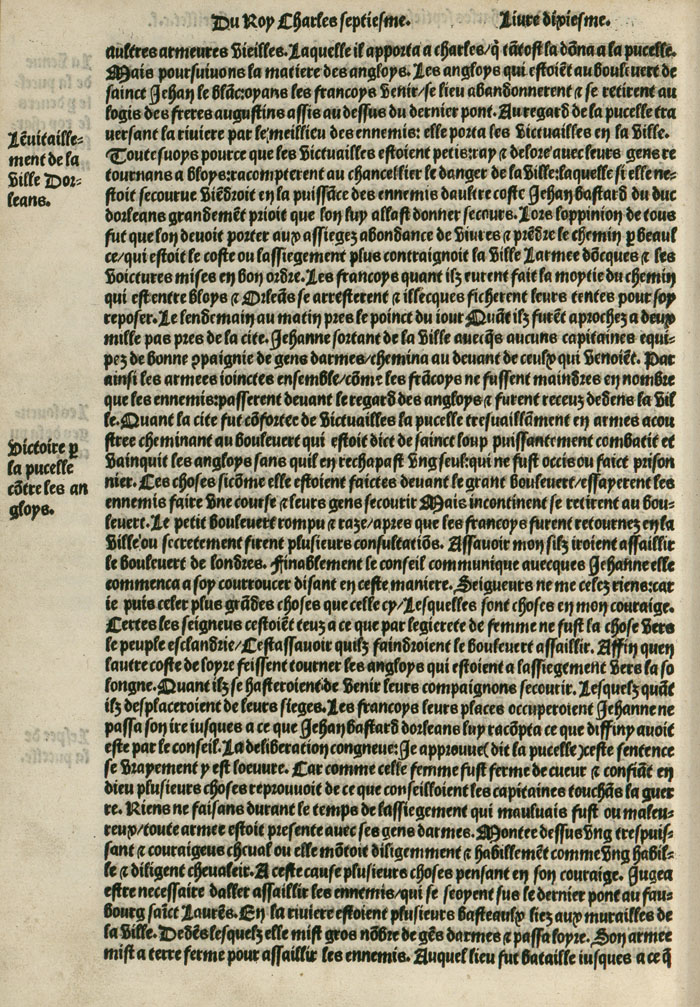 Du Roy Charles septiesme. Livre dixiesme.
aultres armeures vieilles. Laquelle il apporta a charles/q̃ tãtost la dõna a la pucelle.
Mais poursuivons la matiere des angloys. Les angloys qui estoiẽt au boulevert de
sainct Jehan le blãc:oyans les francoys venir/se lieu abandonnerent ⁊ se retirent au
logis des freres augustins assis au dessus du dernier pont. Au regard de la pucelle tra
versant la riviere par le meillieu des ennemis: elle porta les victuailles en la ville.
Toutesuoys pource que les victuailles estoient petis:ray ⁊ delore avec leurs gens re
tournans a bloys:racompterent au chancellier le danger de la ville:laquelle si elle ne-
stoit secourue viẽdroit en la puissãce des ennemis daultre coste Jehan bastard du duc
dorleans grandemẽt prioit que lon luy allast donner secours. Lors loppinion de tous
fut que lon devoit porter aux assiegez abondance de vivres ⁊ prẽdre le chemin ꝑ beaul
ce/qui estoit le coste ou lassiegement plus contraignoit la ville Larmee dõcques ⁊ les
voictures mises en bon ordre. Les francoys quant ilz eurent fait la moytie du chemin
qui est entre bloys ⁊ Orleãs se arresterent ⁊ illecques ficherent leurs tentes pour soy
reposer. Le lendemain au matin pres le poinct du iour Quãt ilz furẽt aprochez a deux
mille pas pres de la cite. Jehanne sortant de la ville avecq̃s aucuns capitaines equi-
pez de bonne ꝯpaignie de gens darmes/chemina au devant de ceulx qui venoiẽt. Par
ainsi les armees ioinctes ensemble/cõme les frãcoys ne fussent maindres en nombre
que les ennemis:passerent devant le regard des angloys ⁊ furent receuz dedens la vil
le. Quant la cite fut cõfortee de victuailles la pucelle tresuaillãment en armes acou
stree cheminant au boulevert qui estoit dict de sainct loup puissantement combatit et
vainquit les angloys sans quil en rechapast vng seul:qui ne fust occis ou faict prison
nier. Ces choses sicõme elle estoient faictes devant le grant boulevert/essayerent les
ennemis faire vne course ⁊ leurs gens secourir Mais incontinent se retirent au bou-
levert. Le petit boulevert rompu ⁊ raze/apres que les francoys furent retournez en la
ville ou secretement firent plusieurs consultatiõs. Assavoir mon silz iroient assaillir
le boulevert de londres. Finablement le conseil communique avecques Jehanne elle
commenca a soy courroucer disant en ceste maniere. Seigueurs ne me celez riens:car
ie puis celer plus grãdes choses que celle cy/Lesquelles sont choses en mon couraige.
Certes les seigneus cestoiẽt teuz a ce que par legierete de femme ne fust la chose vers
le peuple esclandrie/Cestassavoir quilz faindroient le boulevert assaillir. Affin quen
lautre coste de loyre feissent tourner les angloys qui estoient a lassiegement vers la so
longne. Quant ilz se hasteroient de venir leurs compaignons secourir. Lesquelz quãt
ilz desplaceroient de leurs sieges. Les francoys leurs places occuperoient Jehanne ne
passa son ire iusques a ce que Jehan bastard dorleans luy racõpta ce que diffiny avoit
este par le conseil. La deliberation congneue: Je approuve( dit la pucelle )ceste sentence
se vrayement y est loeuure. Car comme celle femme fust ferme de cueur ⁊ confiãt en
dieu plusieurs choses reprouvoit de ce que conseilloient les capitaines touchãs la guer
re. Riens ne faisans durant le temps de lassiegement qui maluais fust ou maleu-
reux/toute armee estoit presente avec ses gens darmes. Montee dessus vng trespuis-
sant ⁊ couraigeux cheval ou elle mõtoit diligemment ⁊ habillemẽt comme vng habil-
le ⁊ diligent chevaleir. A ceste cause plusieurs choses pensant en son couraige. Jugea
estre necessaire daller assaillir les ennemis/qui se seoyent sus le dernier pont au fau-
bourg sãict Laurẽs. En la riviere estoient plusieurs basteaulx liez aux murailles de
la ville. Dedẽs lesquelz elle mist gros nõbre de gẽs darmes ⁊ passa loyre. Son armee
mist a terre ferme pour assaillir les ennemis. Auquel lieu fut bataille iusques a ce q̃
Lẽvitaille-
ment de la
ville Dor-
leans.
Victoire ꝑ
la pucelle
cõtre les an
gloys.